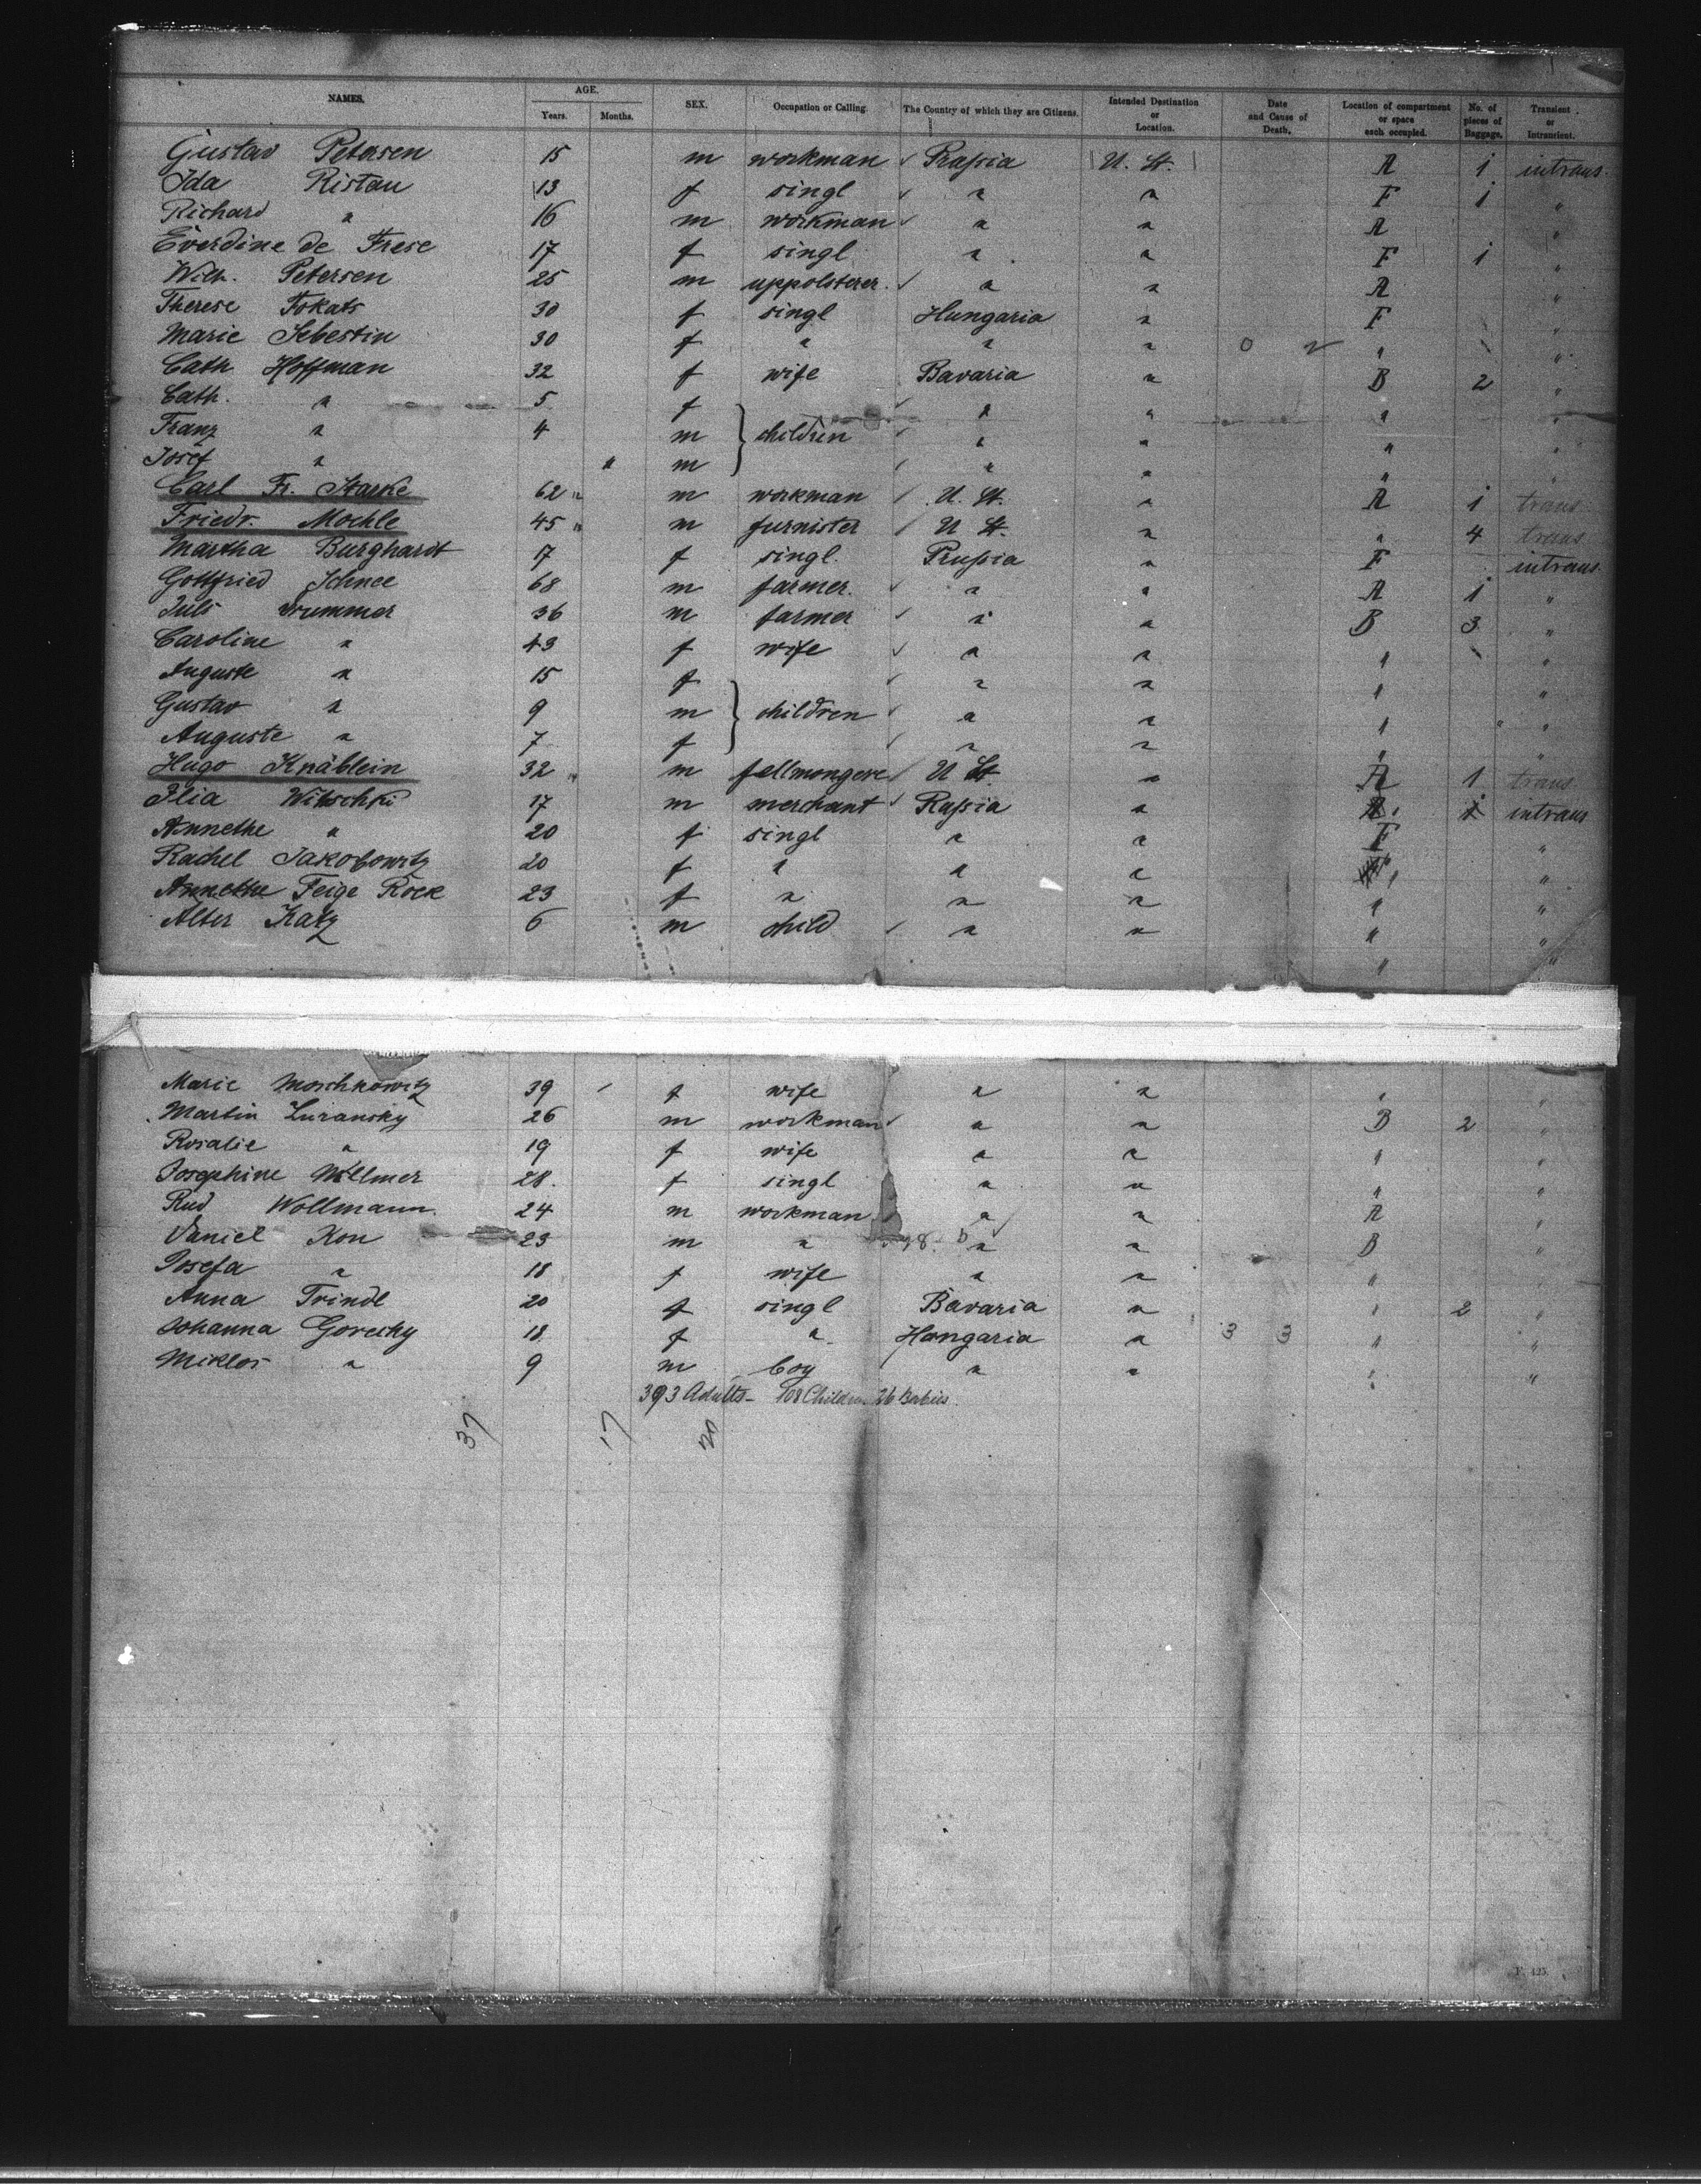 NAMES. AGE. Years. Months. SEX. Occupation or Calling. The Country of which they are Citizens. Intended Destination or Location. Date and Cause of Death. Location of compartment or space each occupied. No. of pieces of Baggage. Transient or Intransient.
Gustav Petersen 15 m workman Prussia U. St. A 1 intrans.
Ida Ristau 13 f singl " " F 1 "
Richard " 16 m workman " " A "
Everdine de Frese 17 f singl " " F 1 "
Wilh. Petersen 25 m uppolsterer " " A "
Therese Fokats 30 f singl Hungaria " F "
Marie Sebestin 30 f " " " 0 " "
Cath Hoffman 32 f wife Bavaria " B 2 "
Cath. " 5 f " " " "
Franz " 4 m children " " " "
Josef " m " " " "
Carl Fr. Starke 62 m workman U. St. " A 1 trans
Friedr. Moehle 45 m furnister U St. " " 4 trans
Martha Burghardt 17 f singl. Prussia " F intrans
Gottfried Schnee 68 m farmer " " A 1 "
Juls Drummer 36 m farmer " " B 3 "
Caroline " 43 f wife " " " "
Auguste " 15 f " " " "
Gustav " 9 m children " " " "
Auguste " 7 f " " " "
Hugo Knäblein 32 m fellmongere U St " A 1 trans
Ilia Witschki 17 m merchant Russia " 1 intrans
Annethe " 20 f singl " " F "
Rachel Jakobowitz 20 f " " " "
Annethe Feige Rock 23 f " " " " "
Alter Katz 6 m child " " " "
" "
Marie Moschkowitz 39 f wife " " " "
Martin Luransky 26 m workman " " B 2 "
Rosalie " 19 f wife " " " "
Josephine Wollmer 28. f singl " " " "
Rud Wollmann. 24 m workman " " A "
Daniel Kon 23 m " " " B "
Josefa " 18 f wife " " " "
Anna Trindl 20 f singl Bavaria " " 2 "
Johanna Gorecky 18 f " Hungaria " 3 3 " "
Miklos " 9 m boy " " " "
393 Adults - 108 Children 26 Babies.
37 17 20
F. 425.